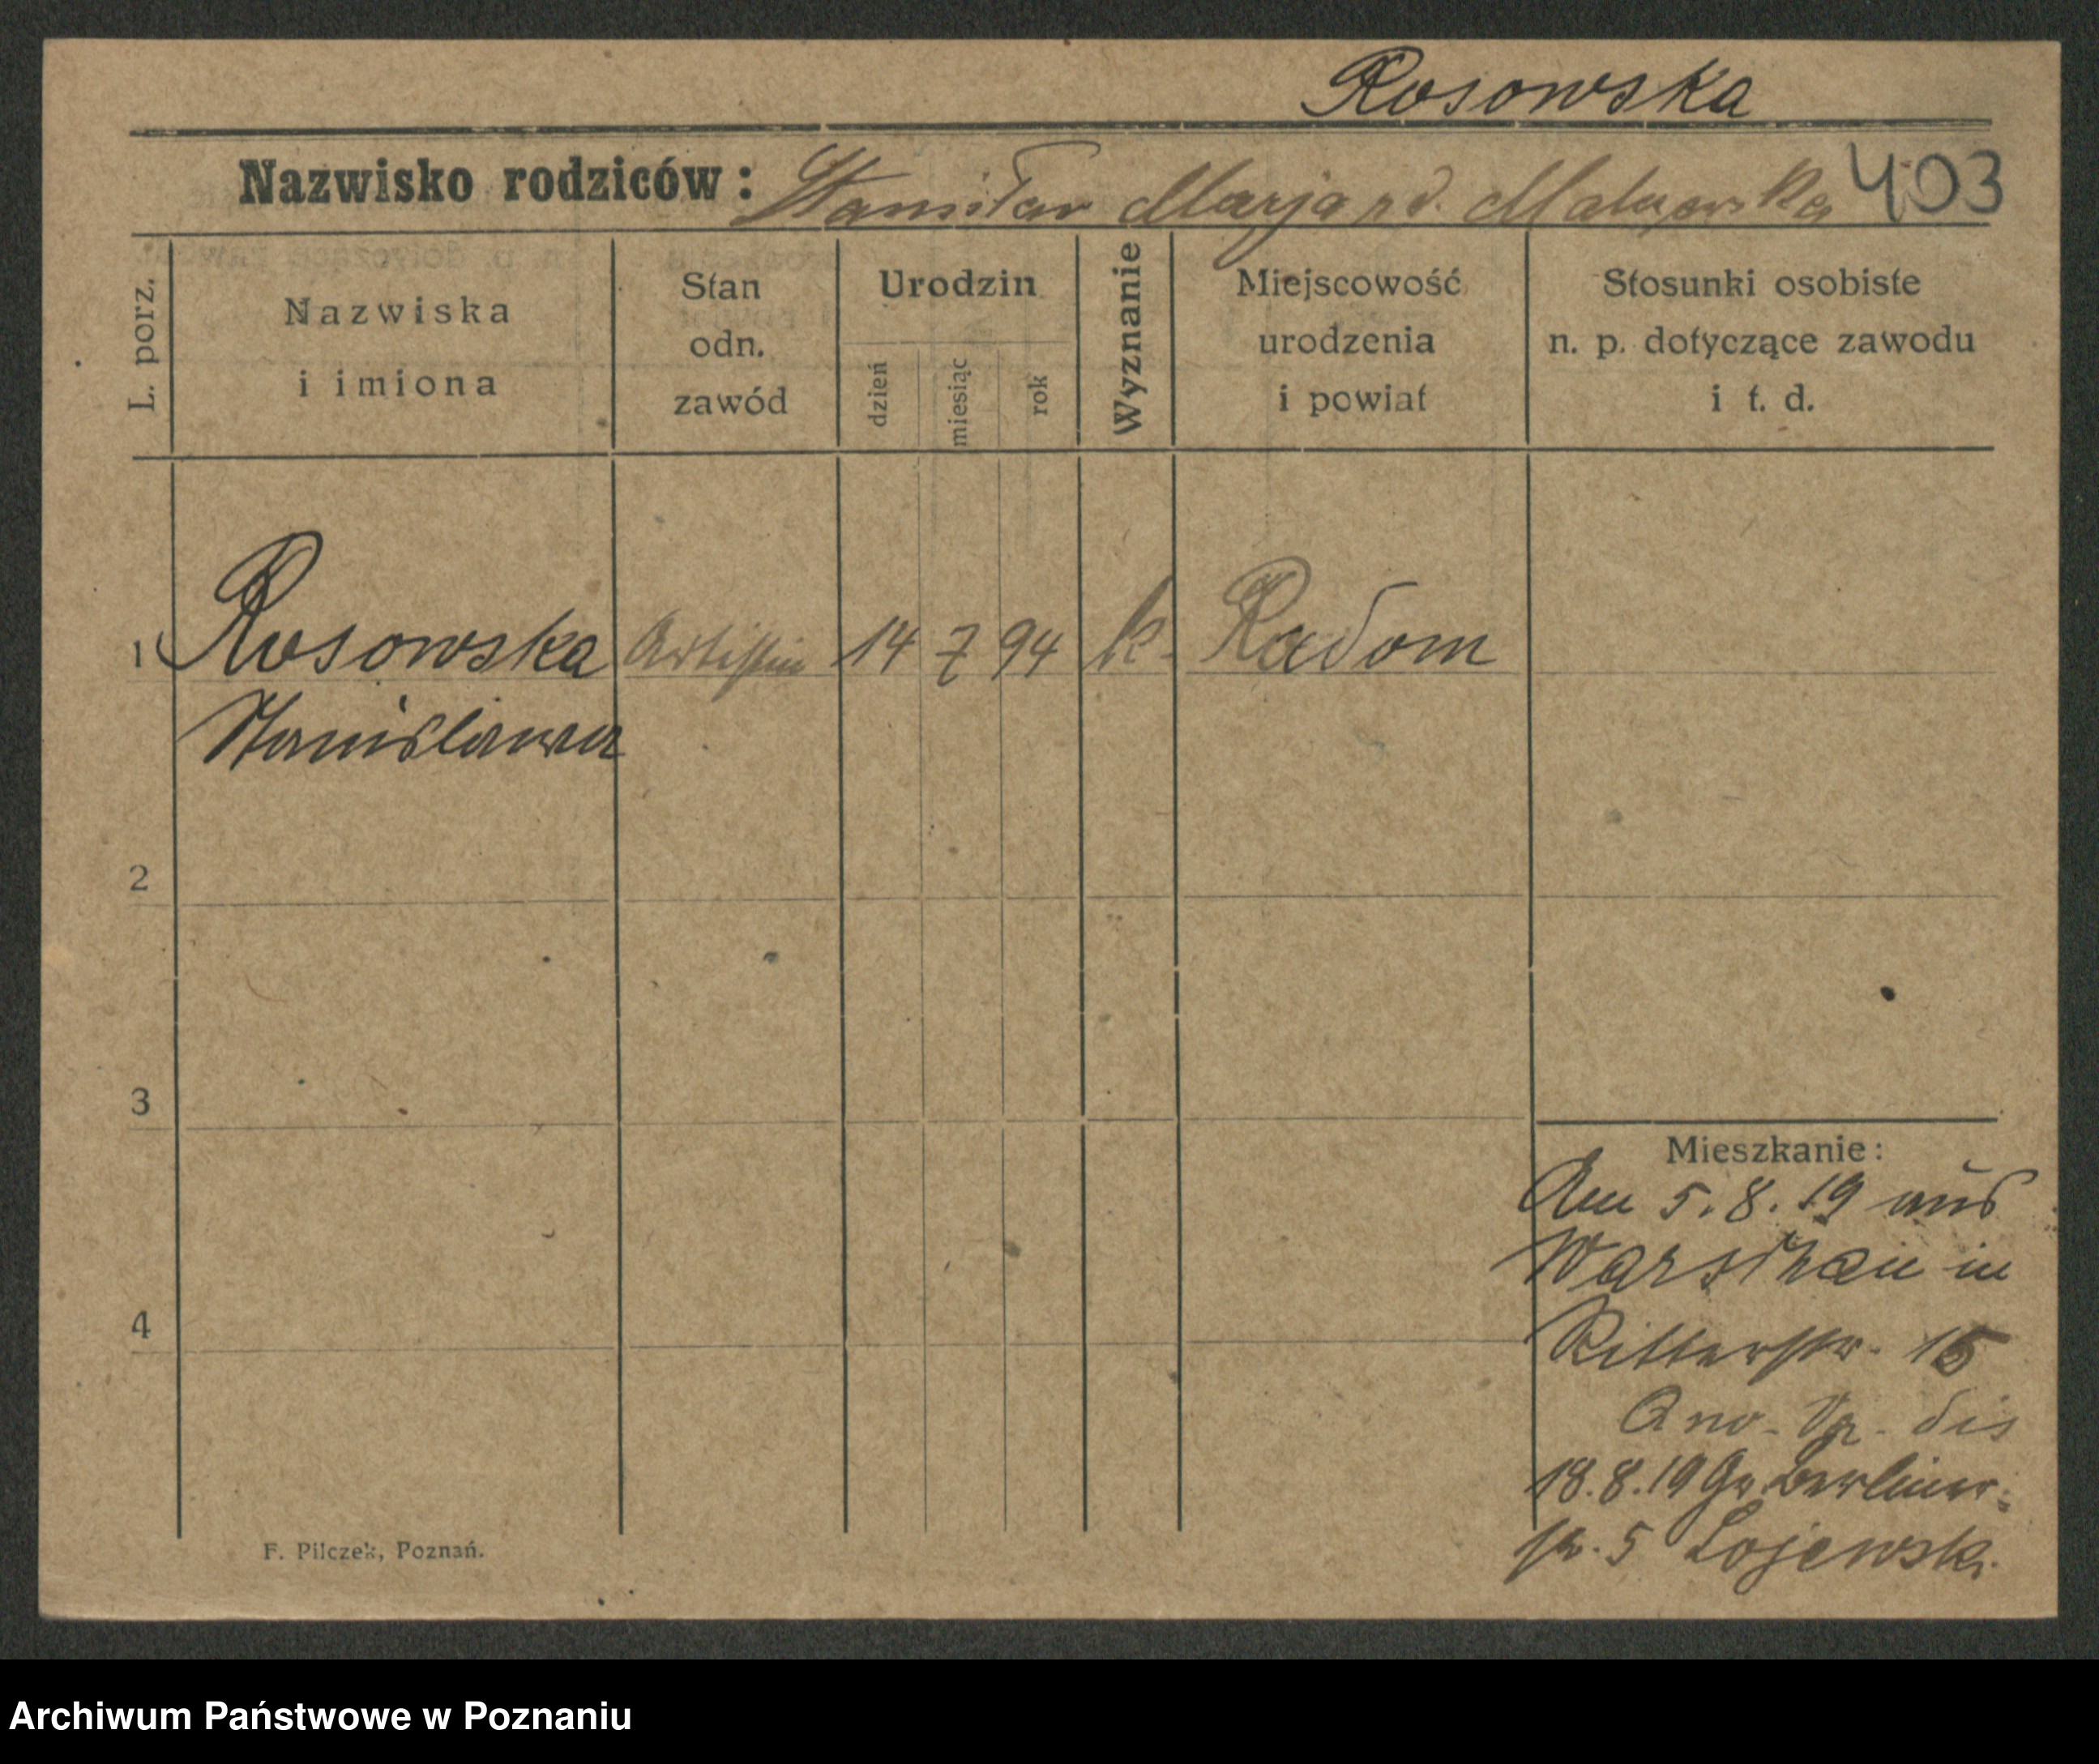 Rosowska
Nazwisko rodziców: Stanisław Marja rd. 403
L. porz.
Nazwiska i imiona
Stan odn. zawód
Urodzin
dzień
miesiąc
rok
Wyznanie
Miejscowość urodzenia i powiat
Stosunki osobiste n. p. dotyczące zawodu i t. d.
1 Rosowska Artistin 14 7 94 k. Radom
Stanislawa
2
3
4
Mieszkanie:
Am 5.8.19 aus
Warschau in
Ritterstr. 15
18.8.19 Gr. Berliner-
str. 5 Lojewski
F. Pilczek, Poznań.
Archiwum Państwowe w Poznaniu